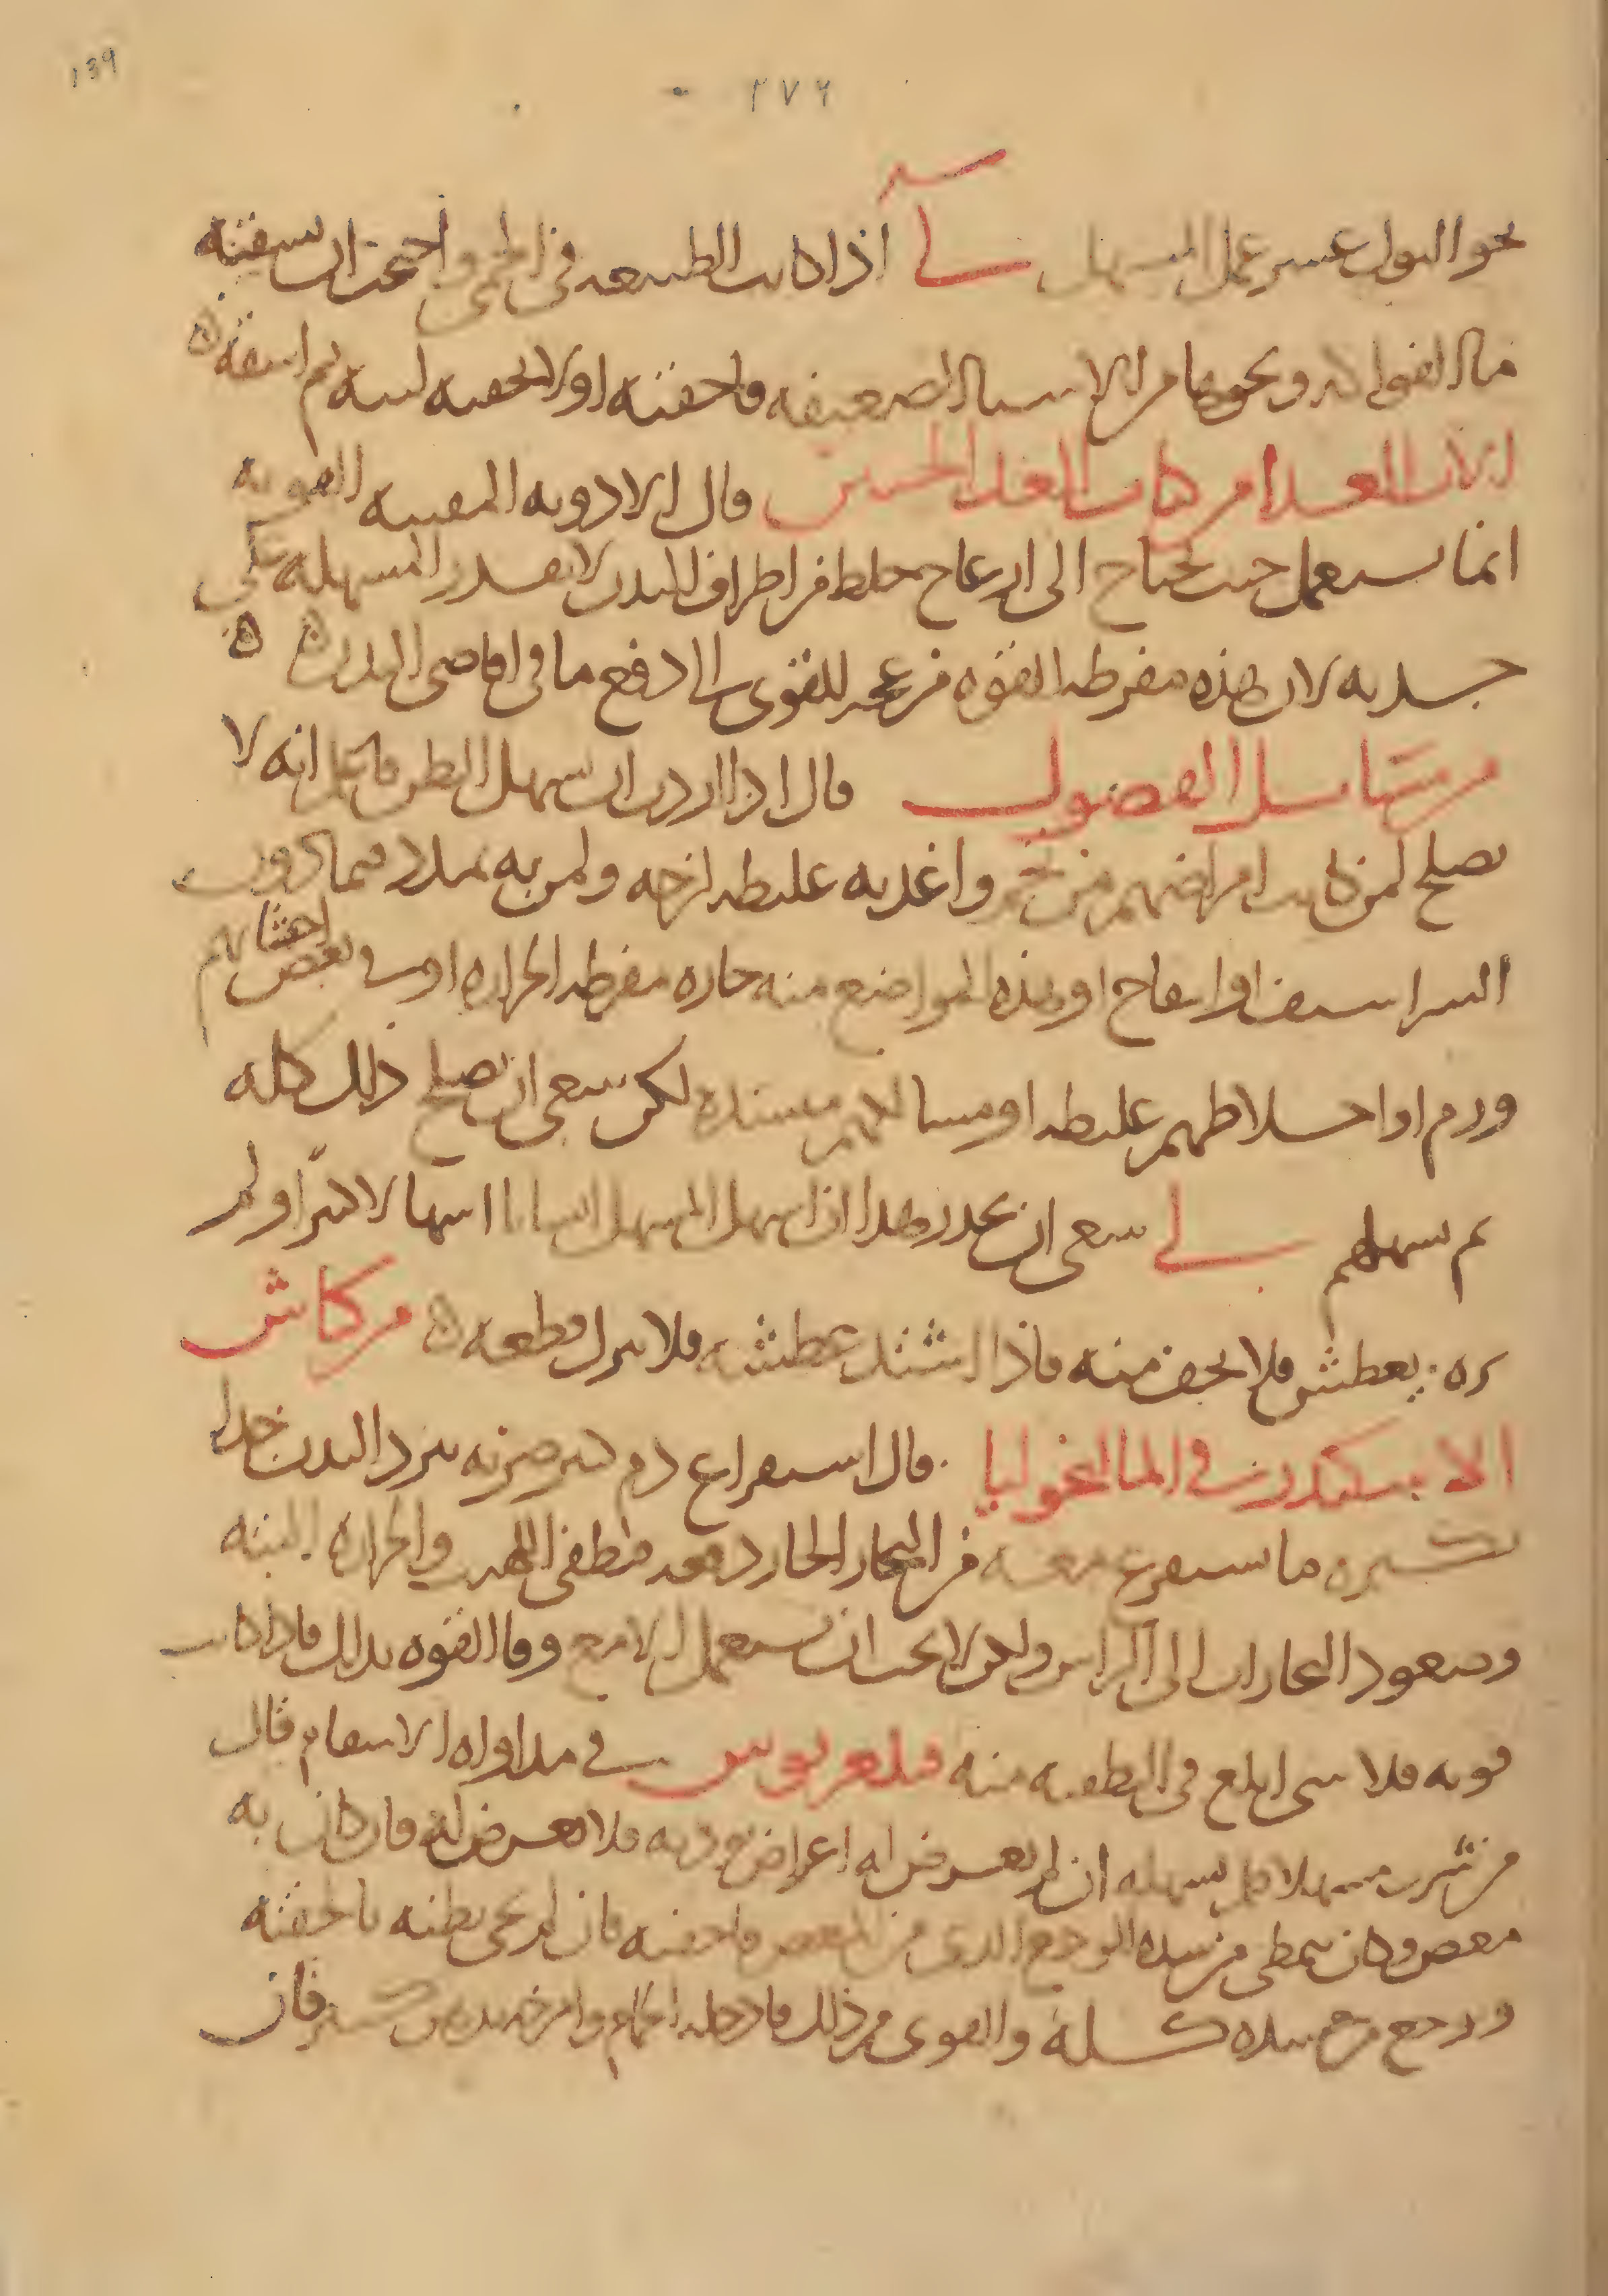 139
٢٧٦
نحو البول عسر عمل المسهل لى اذا كانت الطبيعه فى الحمى واحتجت ان تسقيه
ماء الفواكه ونحوها من الاشياء الضعيفه فاحقنه اولا بحقنه لينه ثم اسقه ه
قال ان الادويه المقييه القويه
انما تستعمل حيث تحتاج الى ازعاج خلط من اطراف البدن لا تقدر المسهله على
جذبه لان هذه مفرطه القوه مزعجه للقوى الى دفع ما فى اقاصى البدن ه ه
من مسائل الفصول قال اذا اردت ان تسهل البطن فاعلم انه لا
يصلح لمن كانت امراضهم من تخم واغذيه غليظه لزجه ولمن به تمدد فيما دون
الشراسيف او انتفاخ او هذه المواضع منه حاره مفرطه الحراره او فى بعض احشائهم
ورم او اخلاطهم غليظه او مسالكهم منسده لكن ينبغى ان يصلح ذلك كله
ثم تسهلهم لى ينبغى ان تحذر هذا اذا اسهل المسهل انسانا اسهالا كثيرا ولم
يره يعطش فلا تخف منه فاذا اشتد عطشه فلا تزل قطعه ه من كناش
الاسكندر فى المالنخوليا قال استفراغ دم كثير ضربه يبرد البدن جدا
لكثره ما يستفرغ معه من البخار الحار دفعه فتطفى اللهيب والحراره البته
وصعود البخارات الى الراس ولكن لا يجب ان تستعمل الا مع وفا القوه بذلك فاذا كانت
قويه فلا شى ابلغ فى التطفيه منه فى مداواه الاسقام قال
من شرب مسهلا فلم يسهله ان لم تعرض له اعراض رديه فلا تعرض له فان كان به
مغص وكان يتمطى من شده الوجع الذى من المغص فاحقنه فان لم يجى بطنه بالحقنه
ووجع مع هذه كسله والتوى من ذلك فادخله الحمام وامرخ بدنه فان